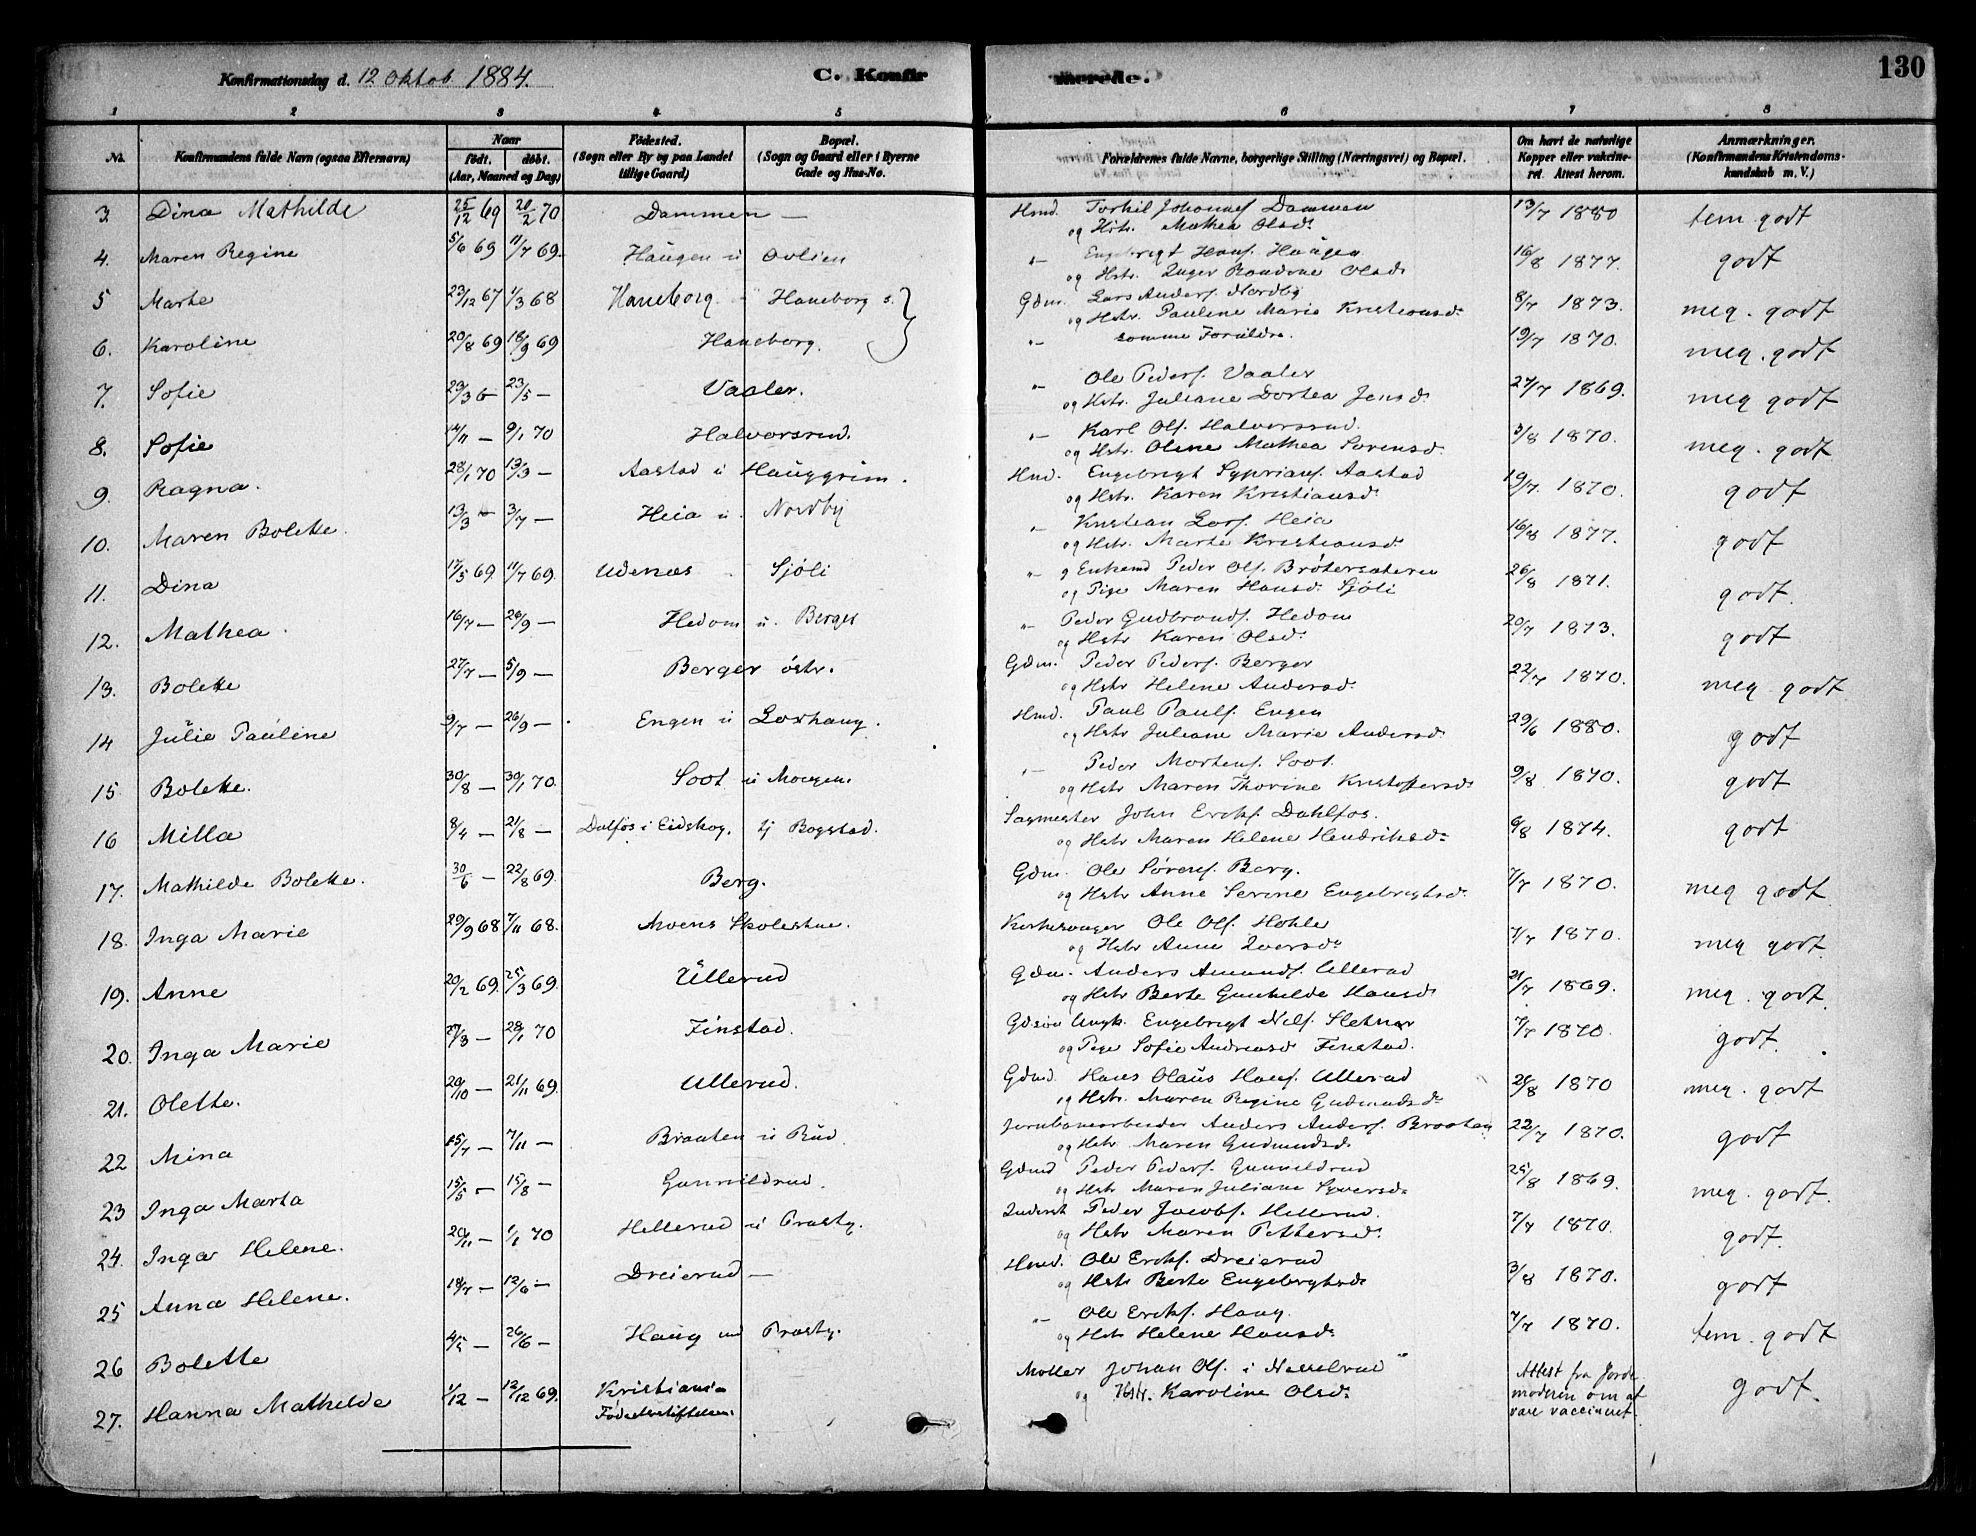 Konfirmationsdag d. 12 Oktob. 1884.
C. Konfirmerede.
130
1 2 3 4 5 6 7 8
No. Konfirmandens fulde Navn (ogsaa Efternavn) Naar født. døbt. (Aar, Maaned og Dag) Fødested. (Sogn eller By og paa Landet tillige Gaard) Bopæl. (Sogn og Gaard eller i Byerne Gade og Hus-No. Forældrenes fulde Navne, borgerlige Stilling (Næringsvei) og Bopæl. Om havt de naturlige Kopper eller vakcineret. Attest herom. Anmærkninger. (Konfirmandens Kristendomskundskab m. V.)
3. Dina Mathilde 25/12 69 20/2 70 Dammen — Hmd. Torkil Johannes. Dammen 13/7 1880 tem. godt
og Hstr. Mathea Olsdr
4. Maren Regine 5/6 69 11/7 69. Haugen u Ovlien „ Engebrigt Hans. Haugen 16/8 1877. godt
og Hstr. Inger Randine Olsdr
5 Marte 23/12 67 1/3 68 Haneborg - Haneborg s. Gdm. Lars Anders. Nordby 8/7 1873. meg. godt
og Hstr. Pauline Marie Kristiansdr
6. Karoline 20/8 69 18/9 69 Haneborg. „ samme Forældre. 19/7 1870. meg. godt
7. Sofie 29/3 23/5 — Vaaler. „ Ole Peders. Vaaler 27/7 1869. meg godt
og Hstr. Juliane Dortea Jensdr
8. Sofie 14/11 — 9/1 70 Halvorsrud. „ Karl Ols. Halvorsrud. 3/8 1870. meg. godt
og Hstr. Oline Mathea Sørensdr
9. Ragna. 28/1 70 13/3 — Aastad u Hauggrim. Hmd. Engebrigt Syprians. Aastad 19/7. 1870. godt
og Hstr. Karen Kristiansdr
10. Maren Bolette. 13/3 3/7 — Heia u. Nordby „ Kristian Lars. Heia 16/8 1877. godt
og Hstr. Marte Kristiansdr
11. Dina 17/5 69. 11/7 69. Udenæs - Sjøli „ Enkemd Peder Ols. Brøtersæteren 26/8 1871. godt.
og Pige Maren Hansdr Sjøli
12. Mathea. 16/7 — 26/9 — Hedom u. Berger „ Peder Gudbrands. Hedom 20/7 1873. godt
og Hstr Karen Olsdr
13. Bolette 27/7 — 5/9 — Berger østr. Gdm. Peder Peders. Berger 22/7 1870. meg. godt
og Hstr Helene Andersdr
14 Julie Pauline 9/7 — 26/9 — Engen u Loshaug. Hmd. Paul Pauls. Engen 29/6 1880. godt
og Hstr Juliane Marie Andersdr
15 Bolette. 30/8 — 30/1 70 Soot u Moengen. „ Peder Mortens. Soot. 9/8 1870. godt
og Hstr Maren Thorine Kristoffersdr
16 Milla 8/4 — 21/8 — Dalfos i Eidskog. Bogstad. Sagmester John Eriks. Dahlfos. 6/8 1874. godt
og Hstr Maren Helene Hendriksdr
17. Mathilde Bolette. 30/6 — 22/8 69. Berg. Gdm. Ole Sørens. Berg. 7/7 1870. meg godt
og Hstr Anne Serine Engebrigtsdr
18. Inga Marie 29/9 68 7/11 68. Moens Skolestue. Kirkesanger Ole Ols. Hohle 7/7 1870. meg godt.
og Hstr Anne Iversdr
19. Anne 20/2 69. 25/3 69. Ullerud Gdm. Anders Amunds. Ullerud 21/7 1869. meg. godt.
og Hstr Berte Gunhilde Hansdr
20. Inga Marie 27/3 — 28/1 70 Finstad. Gdsøn Ungk. Engebrigt Nils. Sletner 7/7 1870 godt.
og Pige Sofie Andreasd Finstad.
21. Olette. 20/10 — 21/11 69. Ullerud. Gdmd. Hans Olaus Hans. Ullerud 25/8 1870 meg. godt
og Hstr. Maren Regine Gudmundsdr
22 Mina 15/7 — 7/11 — Braaten u Rud. Jernbanearbeider Anders Anders. Braaten 22/7 1870. godt
og Hstr Maren Gudmundsdr
23 Inga Marta 15/5 — 15/8 — Gunnildrud. Gdmd Peder Peders. Gunnildrud 25/8 1869. meg. godt.
og Hstr Maren Juliane Syversdr
24. Inga Helene. 20/11 — 1/1 70 Hellerud u Prestg. Inderst Peder Jacobs. Hellerud. 7/7 1870. godt.
og Hstr Maren Pettersdr
25 Anna Helene. 18/7 — 12/6 — Dreierud — Hmd. Ole Eriks. Dreierud 3/8 1870. godt
og Hstr Berte Engebrigtsdr
26 Bolette 4/5 — 26/6 — Haug u Prestg. „ Ole Eriks. Haug. 7/7 1870. tem. godt
og Hstr Helene Hansdr
27. Hanna Mathilde 1/12 — 12/12 69. Kristiania Fødselsstiftelsen. Møller Johan Ols. i Nesselrud Attest fra Jordemoderen om at være vaccineret. godt.
og Hstr. Karoline Olsdr